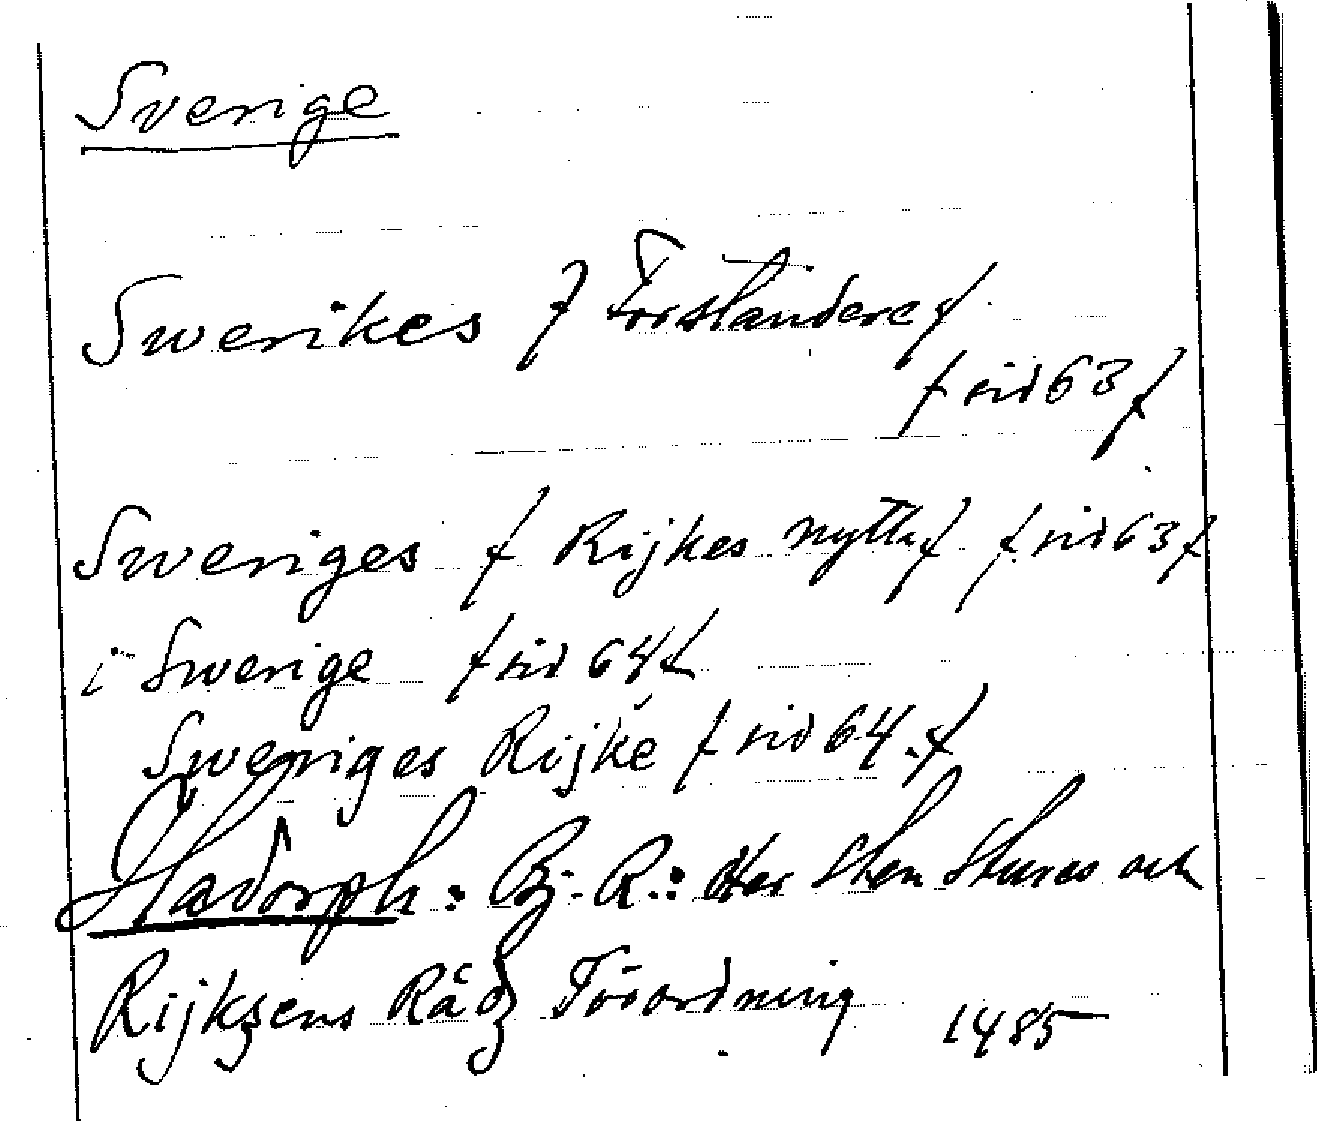 Sverige
Swerikes / Forstandere /
/ sid 63 /
Sweriges / Rijkes nytta / / sid 63 /
i Swerige / sid 64 /
Sweriges Rijke / sid 64. /
Hadorph: Bj. R.: Her Sten Stures och
Rijkzens Rådz Förordning 1485